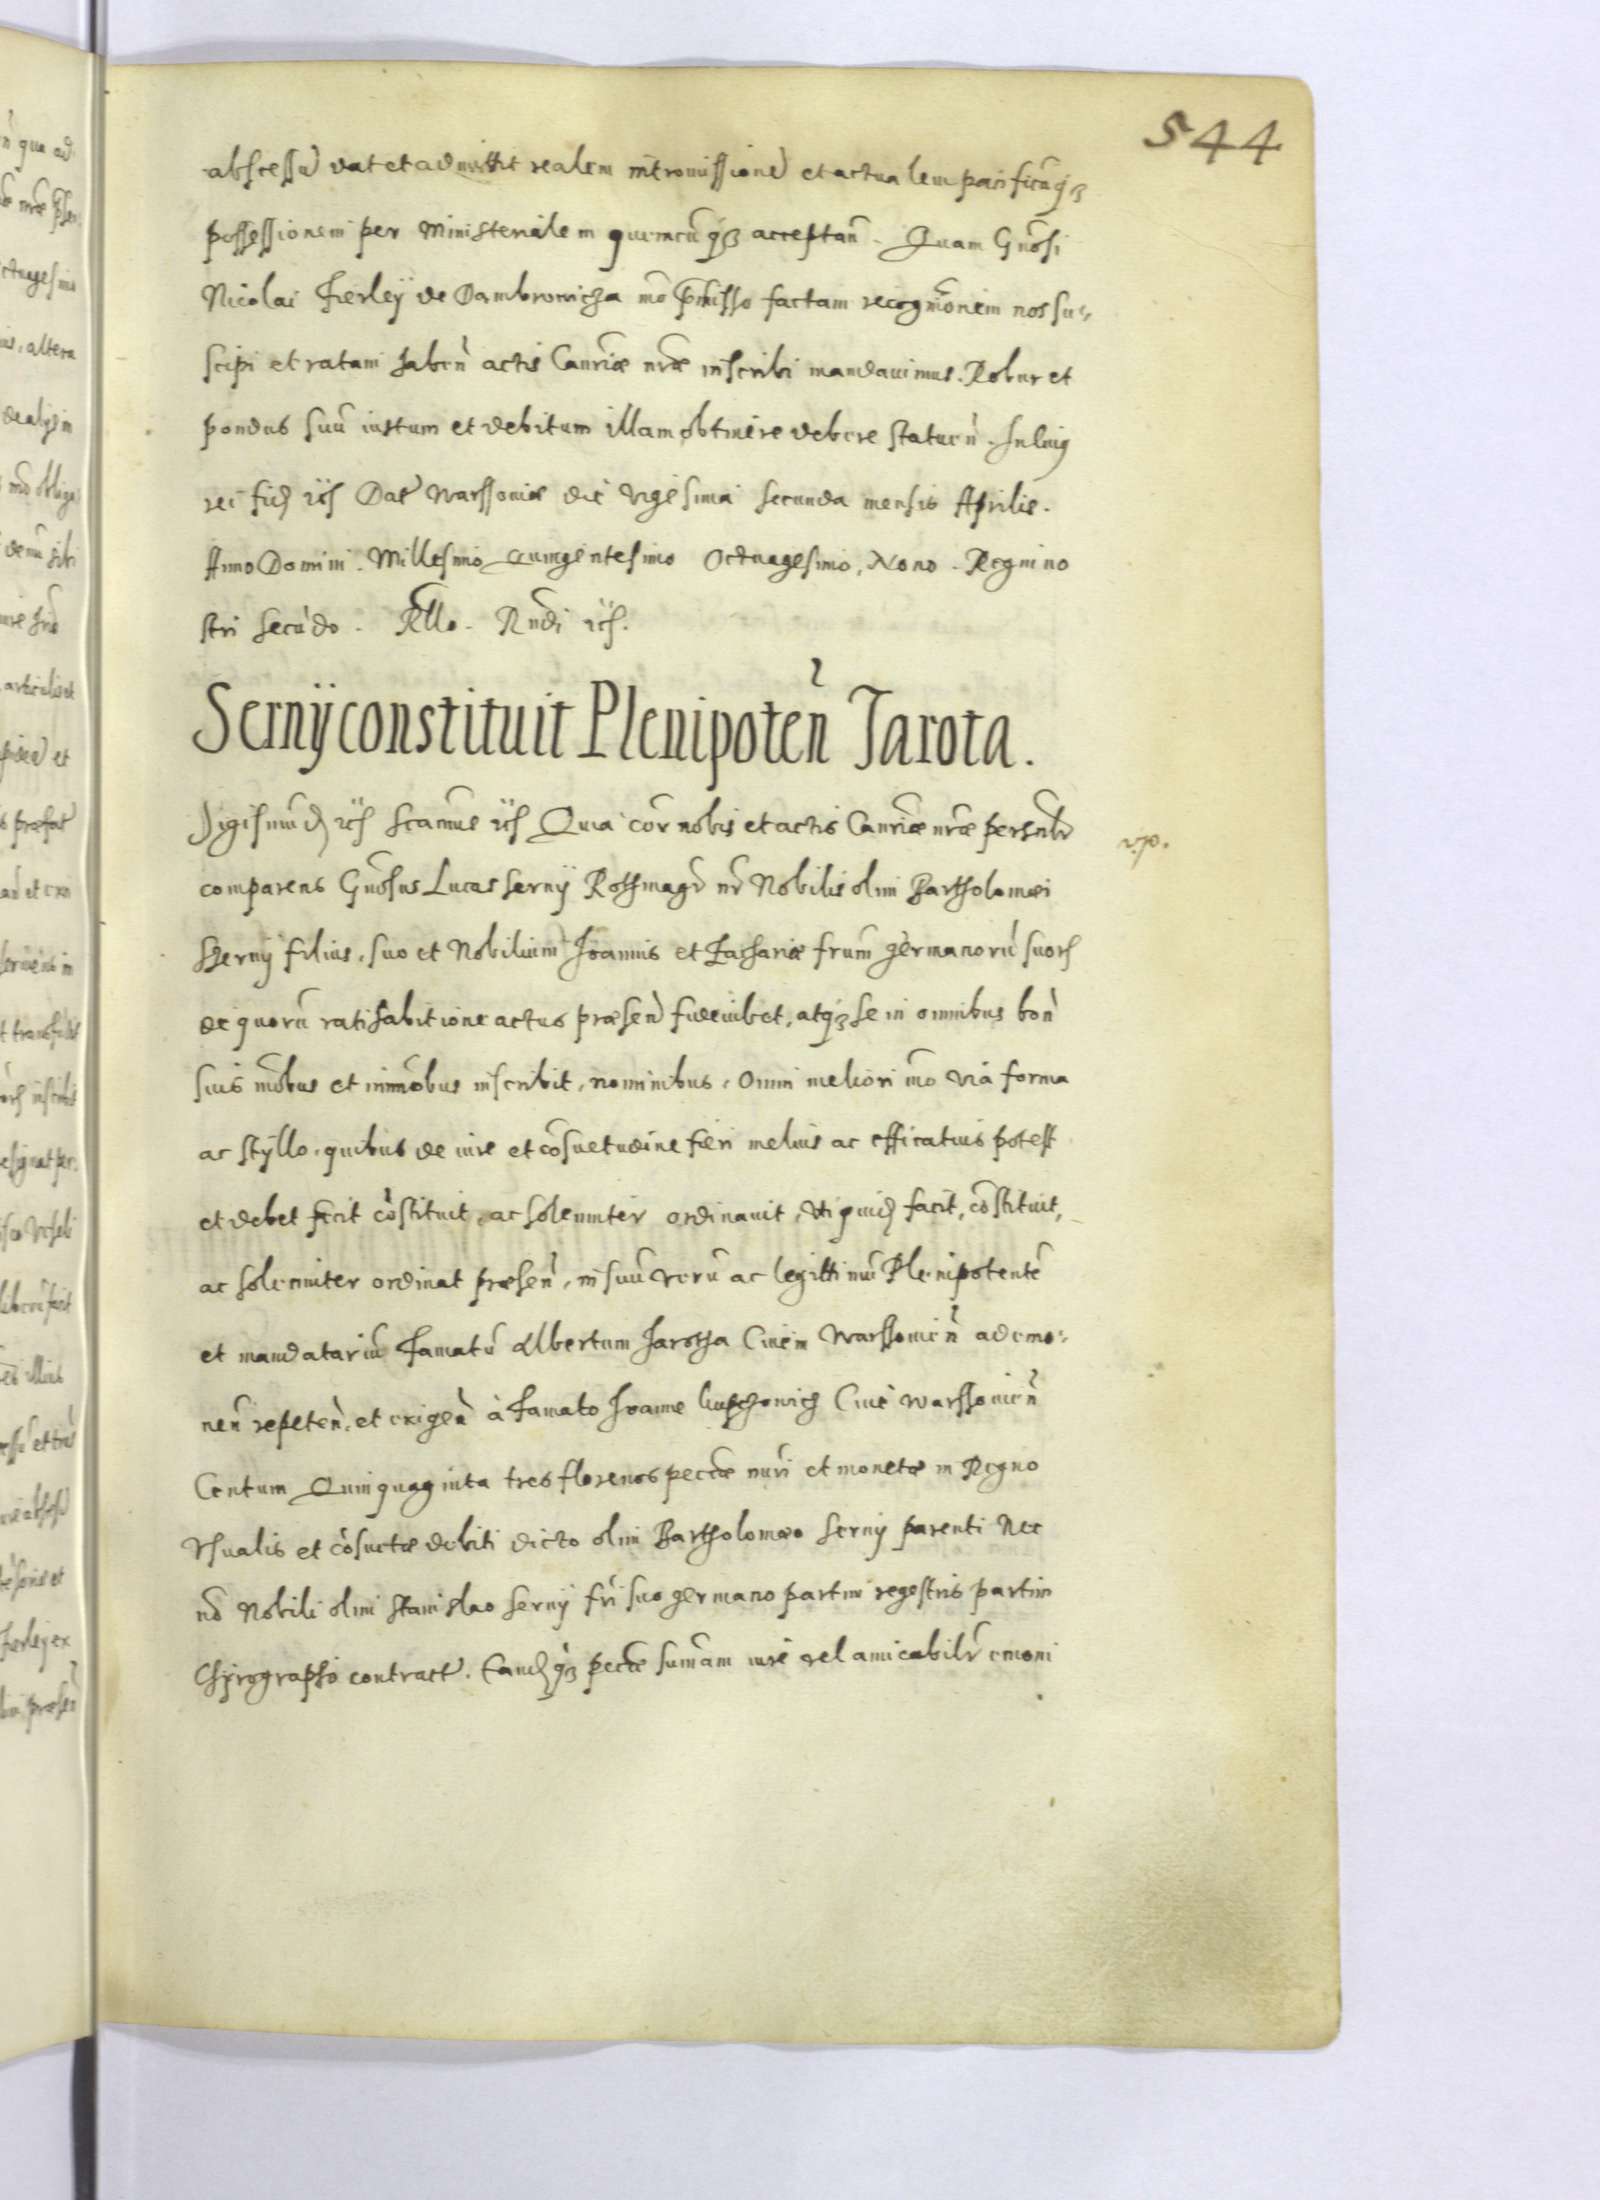 544
abscessū dat et admittit realem intromissionē et actualem pacificūq3
possessionem per Ministerialem quemcūq3 acceptan̄. Quam Gn̄osi
Nicolai Firleÿ de Dambrowicza mō p̄misso factam recogn̄onem nos su-
scipi et ratam haben̄ actis Can̄riæ nr̄æ inscribi mandauimus. Robur et
pondus suū iustum et debitum illam obtinere debere statuen̄. In cuiꝰ
rei fidē etc̄ Dat̄ Warssouiæ diē vigesima secunda mensis Aprilis.
Anno Domini. Millesimo quingentesimo Octuagesimo, Nono. Regni no
stri secūdo. Rl̄lo. Rn̄di etc̄.
Sernÿ constituit Plenipoten̄ Jarota.
Sigismūdꝰ etc̄ Sc̄amus etc̄ Quia cor̄ nobis et actis Can̄riæ nr̄æ personlr̄
v.p.
comparens Gn̄osus Lucas Sernÿ Rothmagr̄ nr̄ Nobilis olim Bartholomæi
Sernÿ filius, suo et Nobilium Joannis et Zachariæ fr̄um germanorū suoꝝ
de quorū ratihabitione actus præsen̄ fideiubet, atq3 se in omnibus bon̄
suis mōbus et immōbus inscribit, nominibus, Omni meliori mō via forma
ac styllo, quibus de iure et cōsuetudine fieri melius ac efficatius potest
et debet fecit cōstituit, ac solenniter ordinauit, vti quidē facit, cōstituit,
ac solenniter ordinat præsen̄, in suū verū ac legittimū Plenipotentē
et mandatariū Famatū Albertum Jarotha Ciuem Warssouien̄ ad emo-
nen̄ repeten̄, et exigen̄ à Famato Joanne Ciue Warssouien̄
Centum Quinquaginta tres florenos pecc̄æ nūri et monetæ in Regno
Vsualis et cōsuetæ debiti dicto olim Bartholomæo Sernÿ parenti Nec
nō Nobili olim Stanislao Sernÿ fr̄i suo germano partim regestris partim
Chyrographo contract̄. Eandēq3 pecc̄æ sum̄am iure vel amicabilr̄ emoni